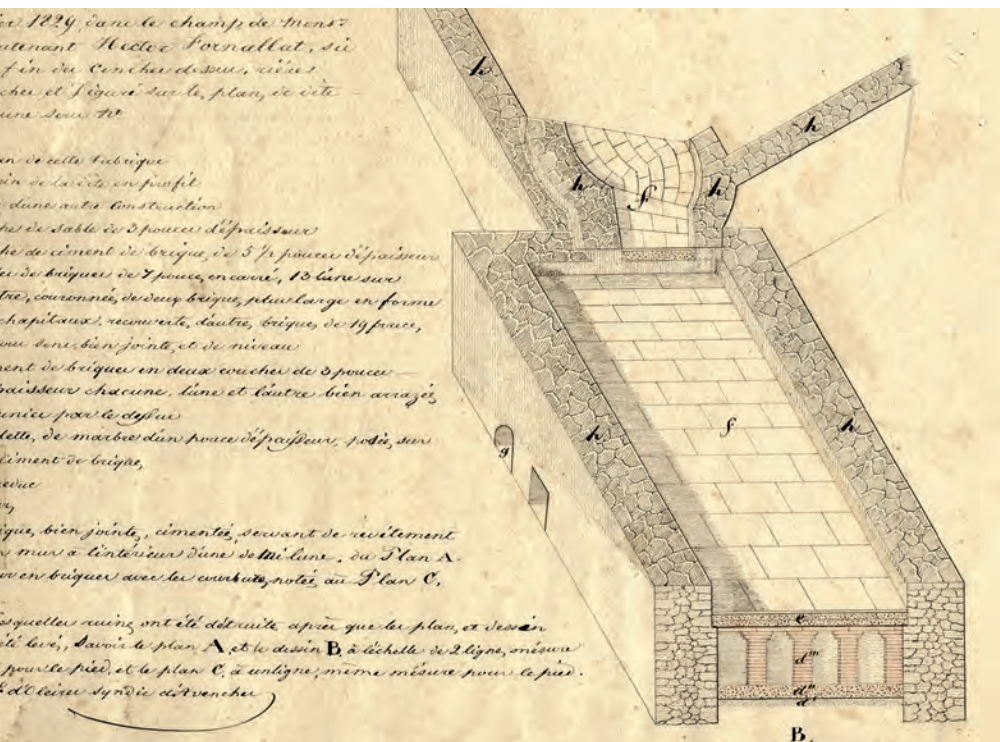 er 1829, dans le champ de Monsr
utenant Hector Fornallat, sis
fin du Concher dessus, rières
cher et figuré sur le plan, de dite
une sous No
an de cette fabrique
sin de la dite en profil
d'une autre Construction
che de sable de 3 pouces d'épaisseur
che de ciment de brique, de 5 1/2 pouces d'épaisseur
de briques de 7 pouce, en carré, 13 l'une sur
tre, couronnée, de deux brique, plus large en forme
chapitaux, recouverte, d'autre, brique, de 19 pouce,
sens, bien jointe, et de niveau
ment de briques en deux couches de 3 pouces
paisseur chacune, l'une et l'autre bien arrazée,
unies par le dessus
lette, de marbre d'un pouce d'épaisseur, posée, sur
ciment de brique,
ueduc
ur,
ique, bien jointe, cimentée, servant de revêtement
mur à l'intérieur d'une demi lune, du Plan A.
en briques avec les courbute, notée au Plan C.
esquelles ruine, ont été détruite après que les plan, et dessin
été levé, Savoir le plan A et le dessin B, à l'échelle de 2 ligne, mesure
pour le pied, et le plan C, à une ligne, même mesure pour le pied.
d'Oleires syndic d'Avenches
h
h
h
h
f
g
h
f
h
e
d'''
d''
d'
B.